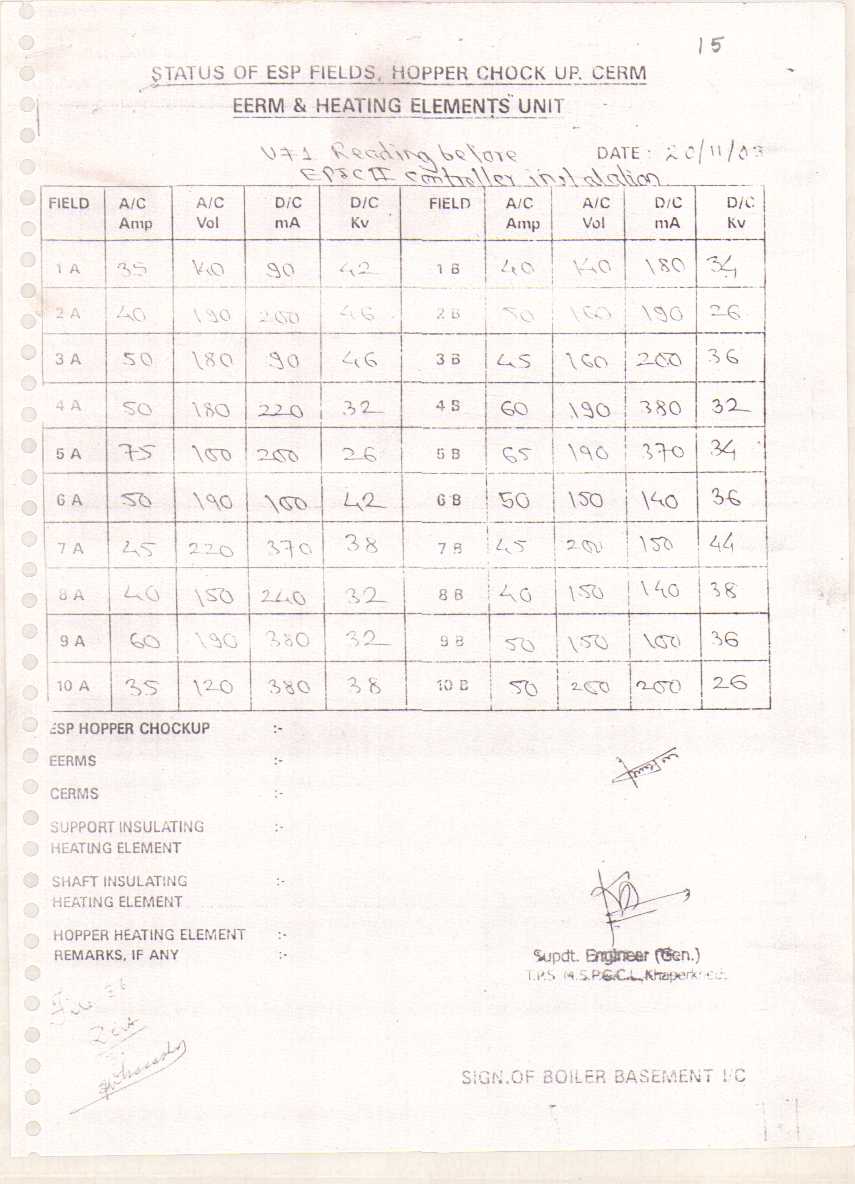 15
STATUS OF ESP FIELDS, HOPPER CHOCK UP. CERM
EERM & HEATING ELEMENTS UNIT
U#1 Reading before DATE : 20/11/03
EPSC II controller installation
FIELD A/C Amp A/C Vol D/C mA D/C Kv FIELD A/C Amp A/C Vol D/C mA D/C Kv
1 A 35 140 90 42 1 B 40 140 180 34
2 A 40 190 200 46 2 B 50 160 190 26
3 A 50 180 90 46 3 B 45 160 200 36
4 A 50 180 220 32 4 B 60 190 380 32
5 A 75 100 200 26 5 B 65 190 370 34
6 A 50 190 100 42 6 B 50 150 140 36
7 A 45 220 370 38 7 B 45 200 150 44
8 A 40 150 240 32 8 B 40 150 140 38
9 A 60 190 380 32 9 B 50 150 100 36
10 A 35 120 380 38 10 B 50 200 200 26
ESP HOPPER CHOCKUP :-
EERMS :-
CERMS :-
SUPPORT INSULATING :-
HEATING ELEMENT
SHAFT INSULATING :-
HEATING ELEMENT
HOPPER HEATING ELEMENT :-
REMARKS, IF ANY :-
Supdt. Engineer (Gen.)
T.P.S. M.S.P.G.C.L., Khaperkheda.
SIGN.OF BOILER BASEMENT I/C